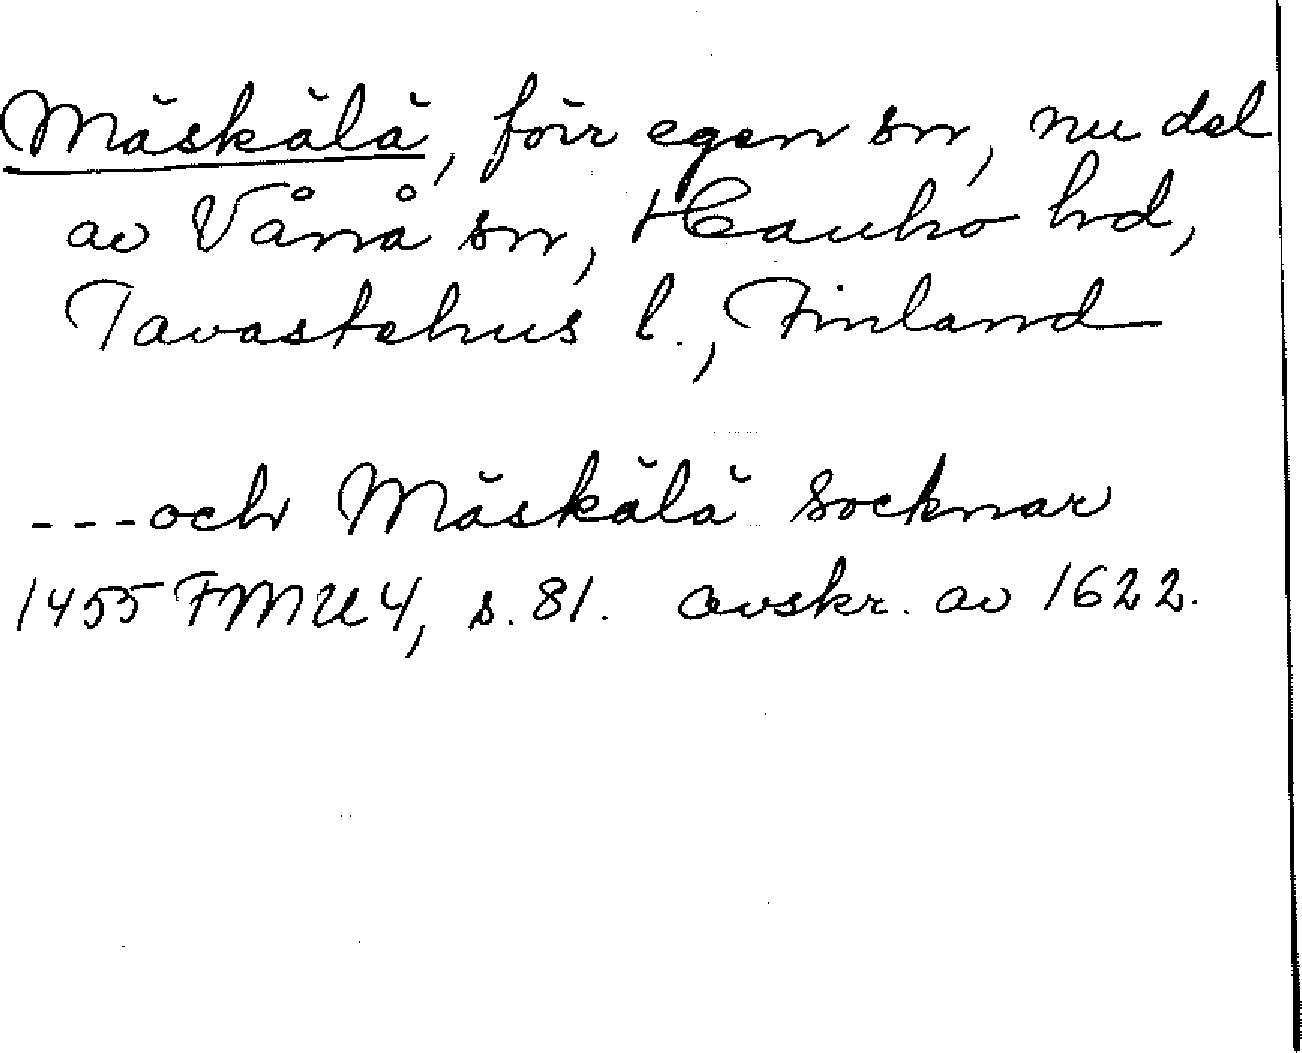 Mäskälä, förr egen sn, nu del
av Vånå sn, Hauho hd,
Tavastehus l., Finland
---och Mäskälä socknar
1455 FMU 4, s. 81. avskr. av 1622.